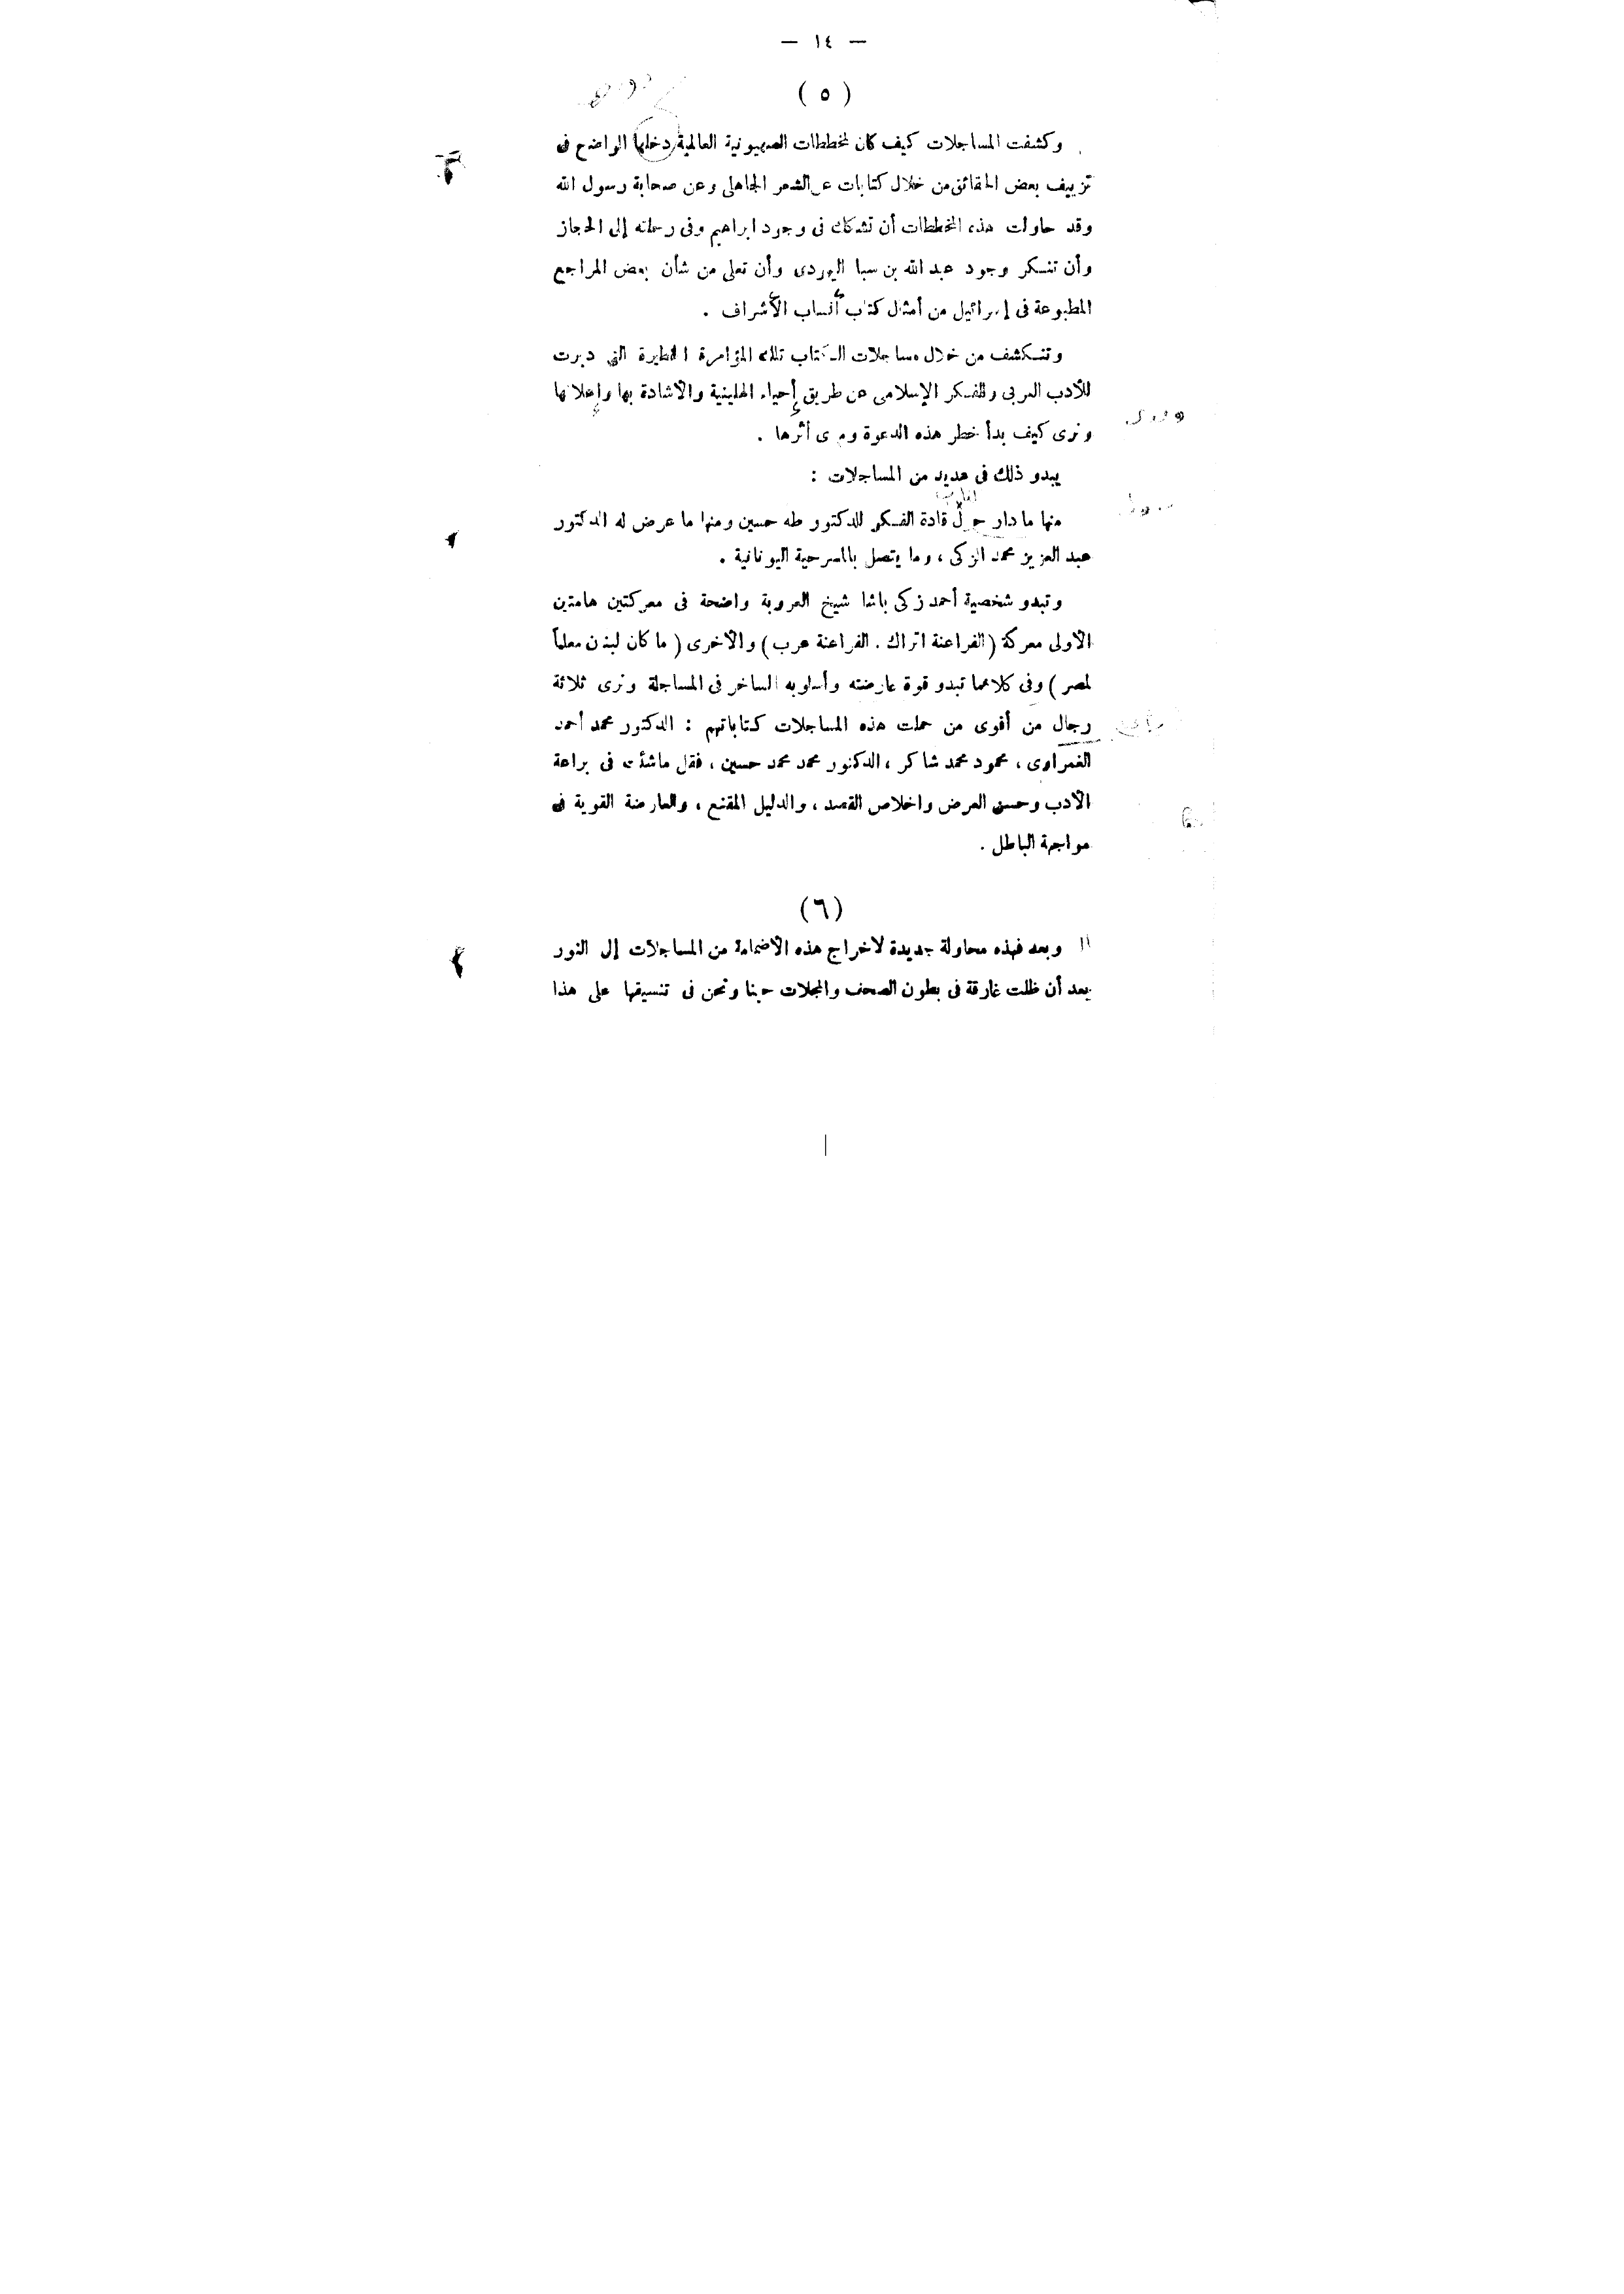 — ١٤ —
( ٥ )
وكشفت المساجلات كيف كان لمخططات الصهيونية العالمية دخلها الواضح فى
تزييف بعض الحقائق من خلال كتابات عن الشعر الجاهلى وعن صحابة رسول الله
وقد حاولت هذه المخططات أن تشكك فى وجود ابراهيم وفى رسالته إلى الحجاز
وأن تنكر وجود عبد الله بن سبا اليهودى وأن تعلى من شأن بعض المراجع
المطبوعة فى إسرائيل من أمثال كتاب أنساب الأشراف .
وتنكشف من خلال مساجلات الكتاب تلك المؤامرة الخطيرة التى دبرت
للأدب العربى وللفكر الإسلامى عن طريق إحياء الهلينية والاشادة بها وإعلائها
ونرى كيف بدأ خطر هذه الدعوة ومدى أثرها .
يبدو ذلك فى عديد من المساجلات :
منها ما دار حول قادة الفكر للدكتور طه حسين ومنها ما عرض له الدكتور
عبد العزيز محمد الزكى ، وما يتصل بالمسرحية اليونانية .
وتبدو شخصية أحمد زكى باشا شيخ العروبة واضحة فى معركتين هامتين
الاولى معركة ( الفراعنة اتراك . الفراعنة عرب ) والاخرى ( ما كان لبنان معلماً
لمصر ) وفى كلاهما تبدو قوة عارضته وأسلوبه الساخر فى المساجلة ونرى ثلاثة
رجال من أقوى من حملت هذه المساجلات كتاباتهم : الدكتور محمد أحمد
الغمراوى ، محمود محمد شاكر ، الدكتور محمد محمد حسين ، فقل ماشئت فى براعة
الادب وحسن العرض واخلاص القصد ، والدليل المقنع ، والعارضة القوية فى
مواجهة الباطل .
(٦)
وبعد فهذه محاولة جديدة لاخراج هذه الاضمامة من المساجلات إلى النور
بعد أن ظلت غارقة فى بطون الصحف والمجلات حينا ونحن فى تنسيقها على هذا